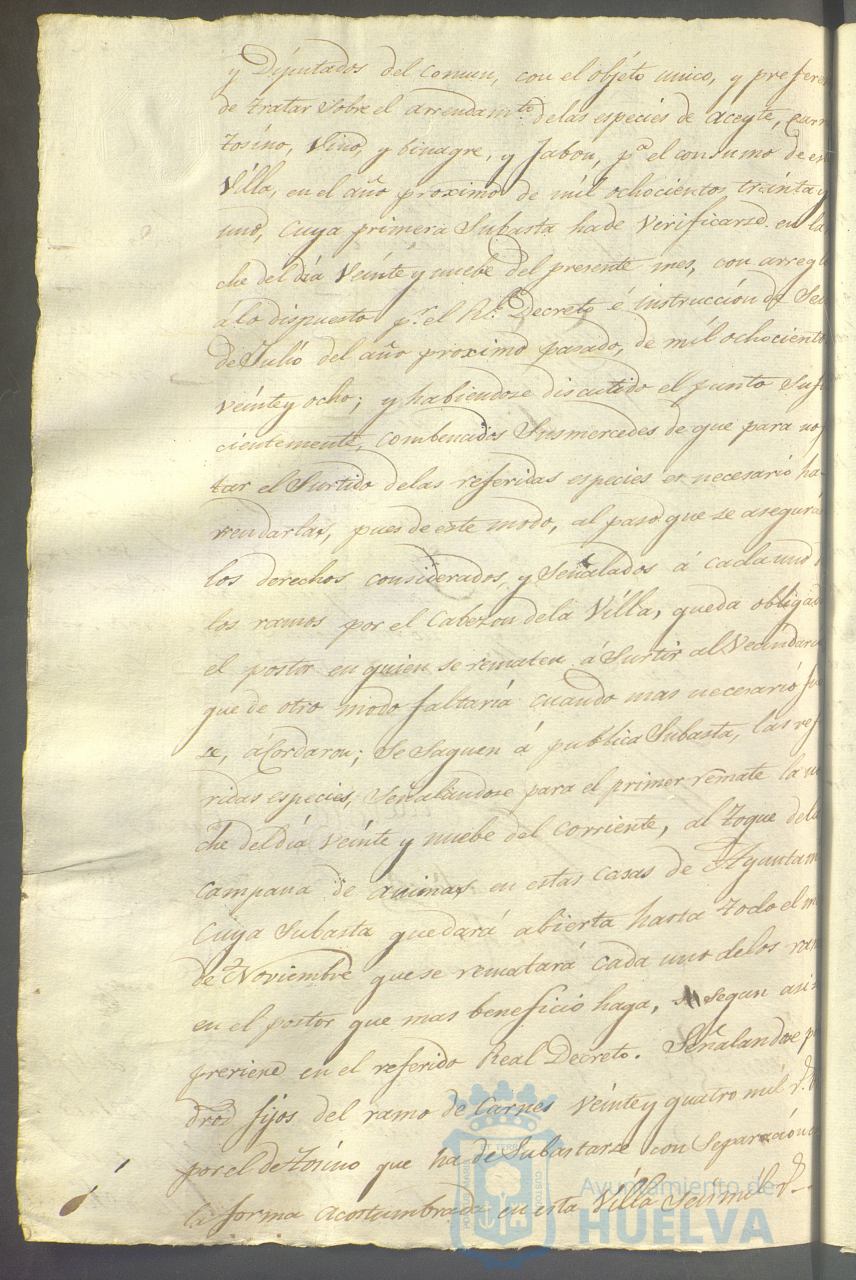 y Diputados del comun, con el objéto unico, y prefere
de tratar sobre el arrendam.to delas especies de Aceyte, Carn
tosino, Vino, y binagre, y Jabon, p.a el consumo de es
Villa, en el año proximo de mil ochocientos treinta y
uno, cuya primera Subasta hade Verificarse en la
che del dia Veinte y nuebe del presente mes, con arreg
alo dispuesto p.r el R.l Decreto é instrucción de Sei
de Julio del año proximo pasado, de mil ochociento
veinte y ocho; y habiendose discutido el punto Sufi
cientemente, Combencidos Susmercedes de que para no
tar el Surtido delas referidas especies es necesario ha
rendarlas, pues de este modo, al paso que se asegurá
los derechos considerados, y Señalados á cada uno
los ramos por el Cabezon dela Villa, queda obligad
el postor en quien se rematen á Surtir al Vecindari
que de otro modo faltaría cuando mas necesarió fu
se, ácordaron; Se Saquen á publica Subasta, las ref
ridas especies, Señalandose para el primer rémate la n
che del dia Veinte y nuebe del corriente, al toque dela
campana de animas en estas casas de Ayuntam
cuya Subasta quedará abierta hasta todo el m
de Noviembre que se rematará cada uno delos ram
en el postor que mas beneficio haga, segun asi
previene en el referido Real Decreto. Señalandose p
dros fijos del ramo de Carnes Veinte y quatro mil r.s
por el de tosino que ha de Subastarse con Separación
la forma acostumbrada en esta Villa Seis mil r.s
PORTUS MARIS ET TERRAE CUSTODIA
Ayuntamiento de
HUELVA